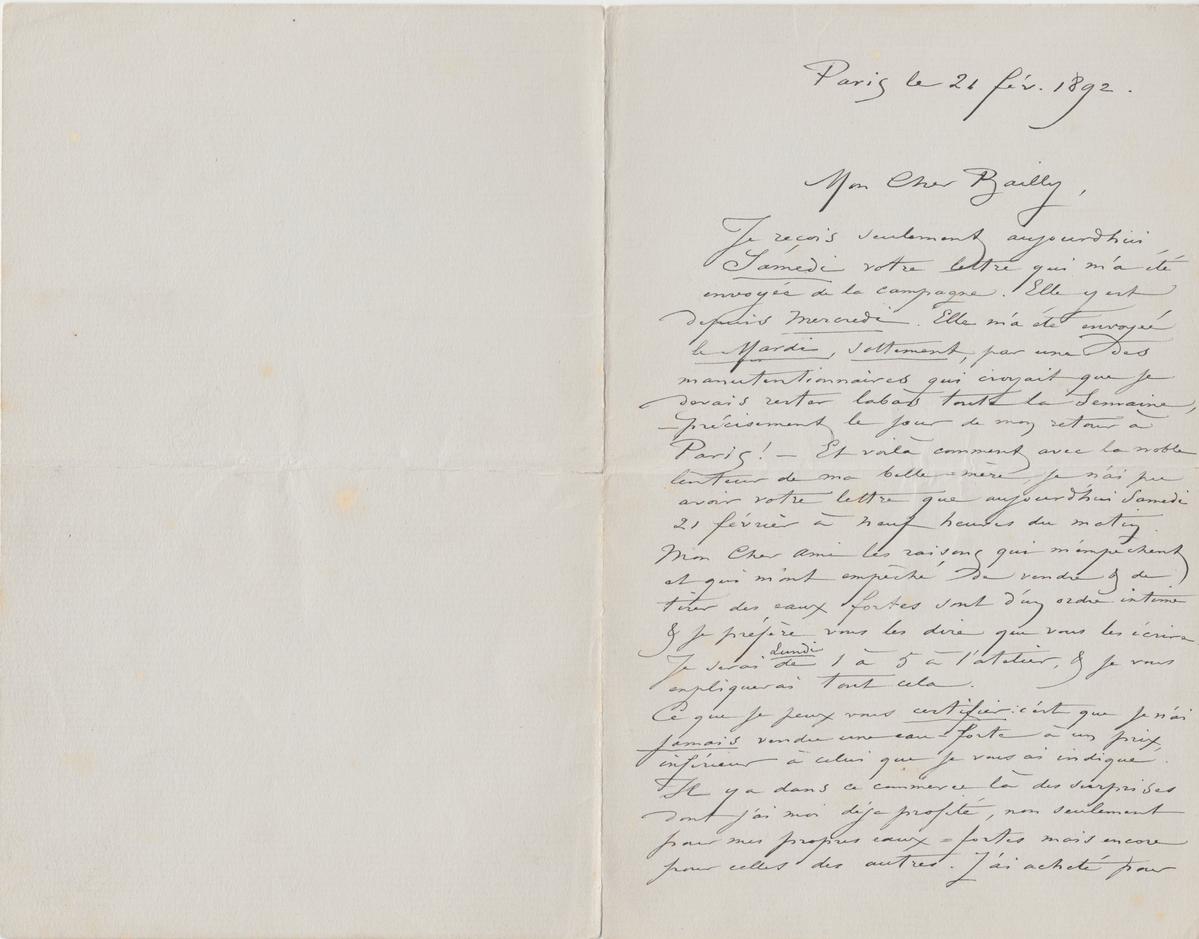 Paris le 21 fév. 1892.
Mon Cher Bailly,
Je reçois seulement aujourd'hui
Samedi votre lettre qui m'a été
envoyée de la campagne. Elle y est
depuis Mercredi. Elle m'a été envoyée
le Mardi, sottement, par une des
manutentionnaires qui croyait que je
devais rester labas toute la Semaine,
– précisement le jour de mon retour à
Paris! – Et voilà comment avec la noble
lenteur de ma belle-mère, je n'ai pu
avoir votre lettre que aujourd'hui Samedi
21 février à neuf heures du matin
Mon Cher ami les raisons qui m'empêchent
et qui m'ont empêché de vendre & de
tirer des eaux fortes sont d'un ordre intime
& je préfère vous les dire que vous les écrire
Je serai Lundi de 1 à 5 à l'atelier, & je vous
expliquerai tout cela.
Ce que je peux vous certifier: c'est que je n'ai
jamais vendu une eau-forte à un prix
inférieur à celui que je vous ai indiqué.
Il y a dans ce commerce là des surprises
dont j'ai moi déja profité, non seulement
pour mes propres eaux-fortes mais encore
pour celles des autres. J'ai acheté pour